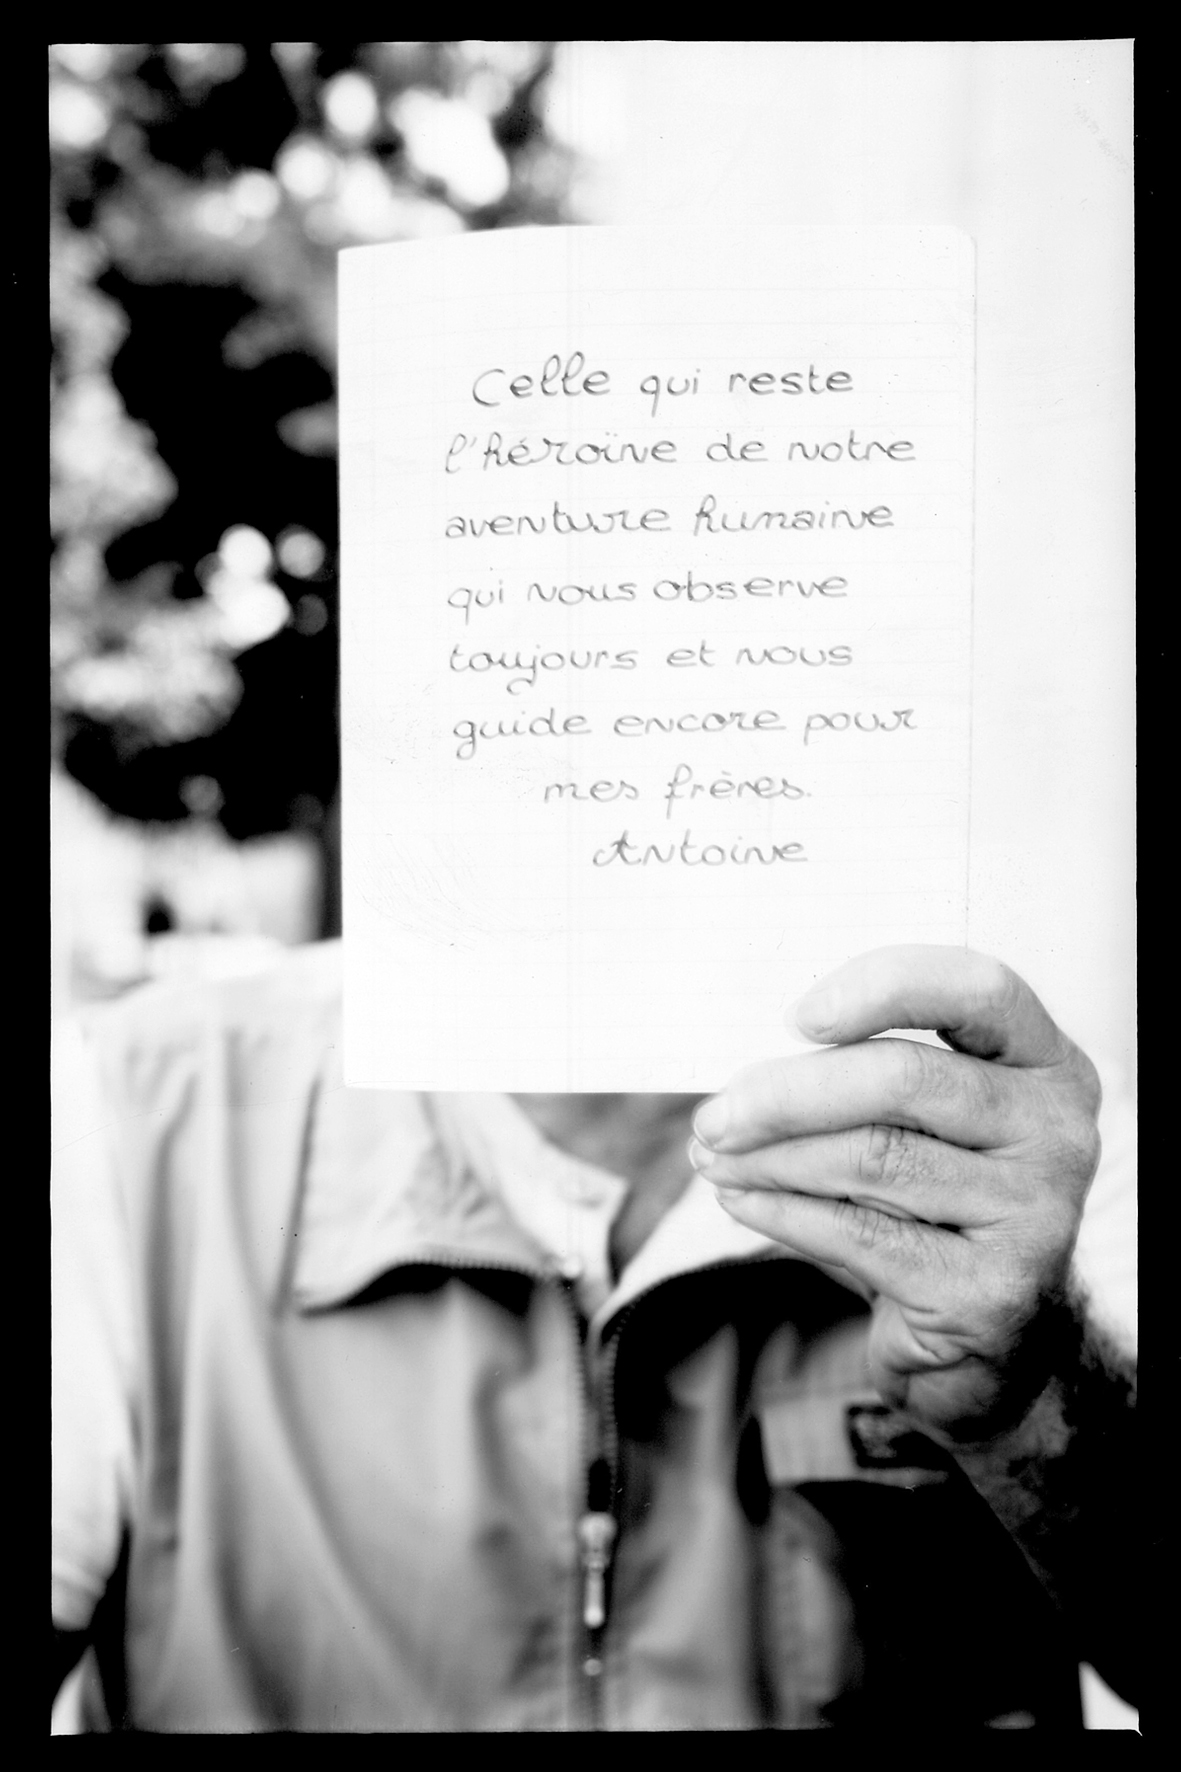 Celle qui reste
l'héroïne de notre
aventure humaine
qui nous observe
toujours et nous
guide encore pour
mes frères.
Antoine